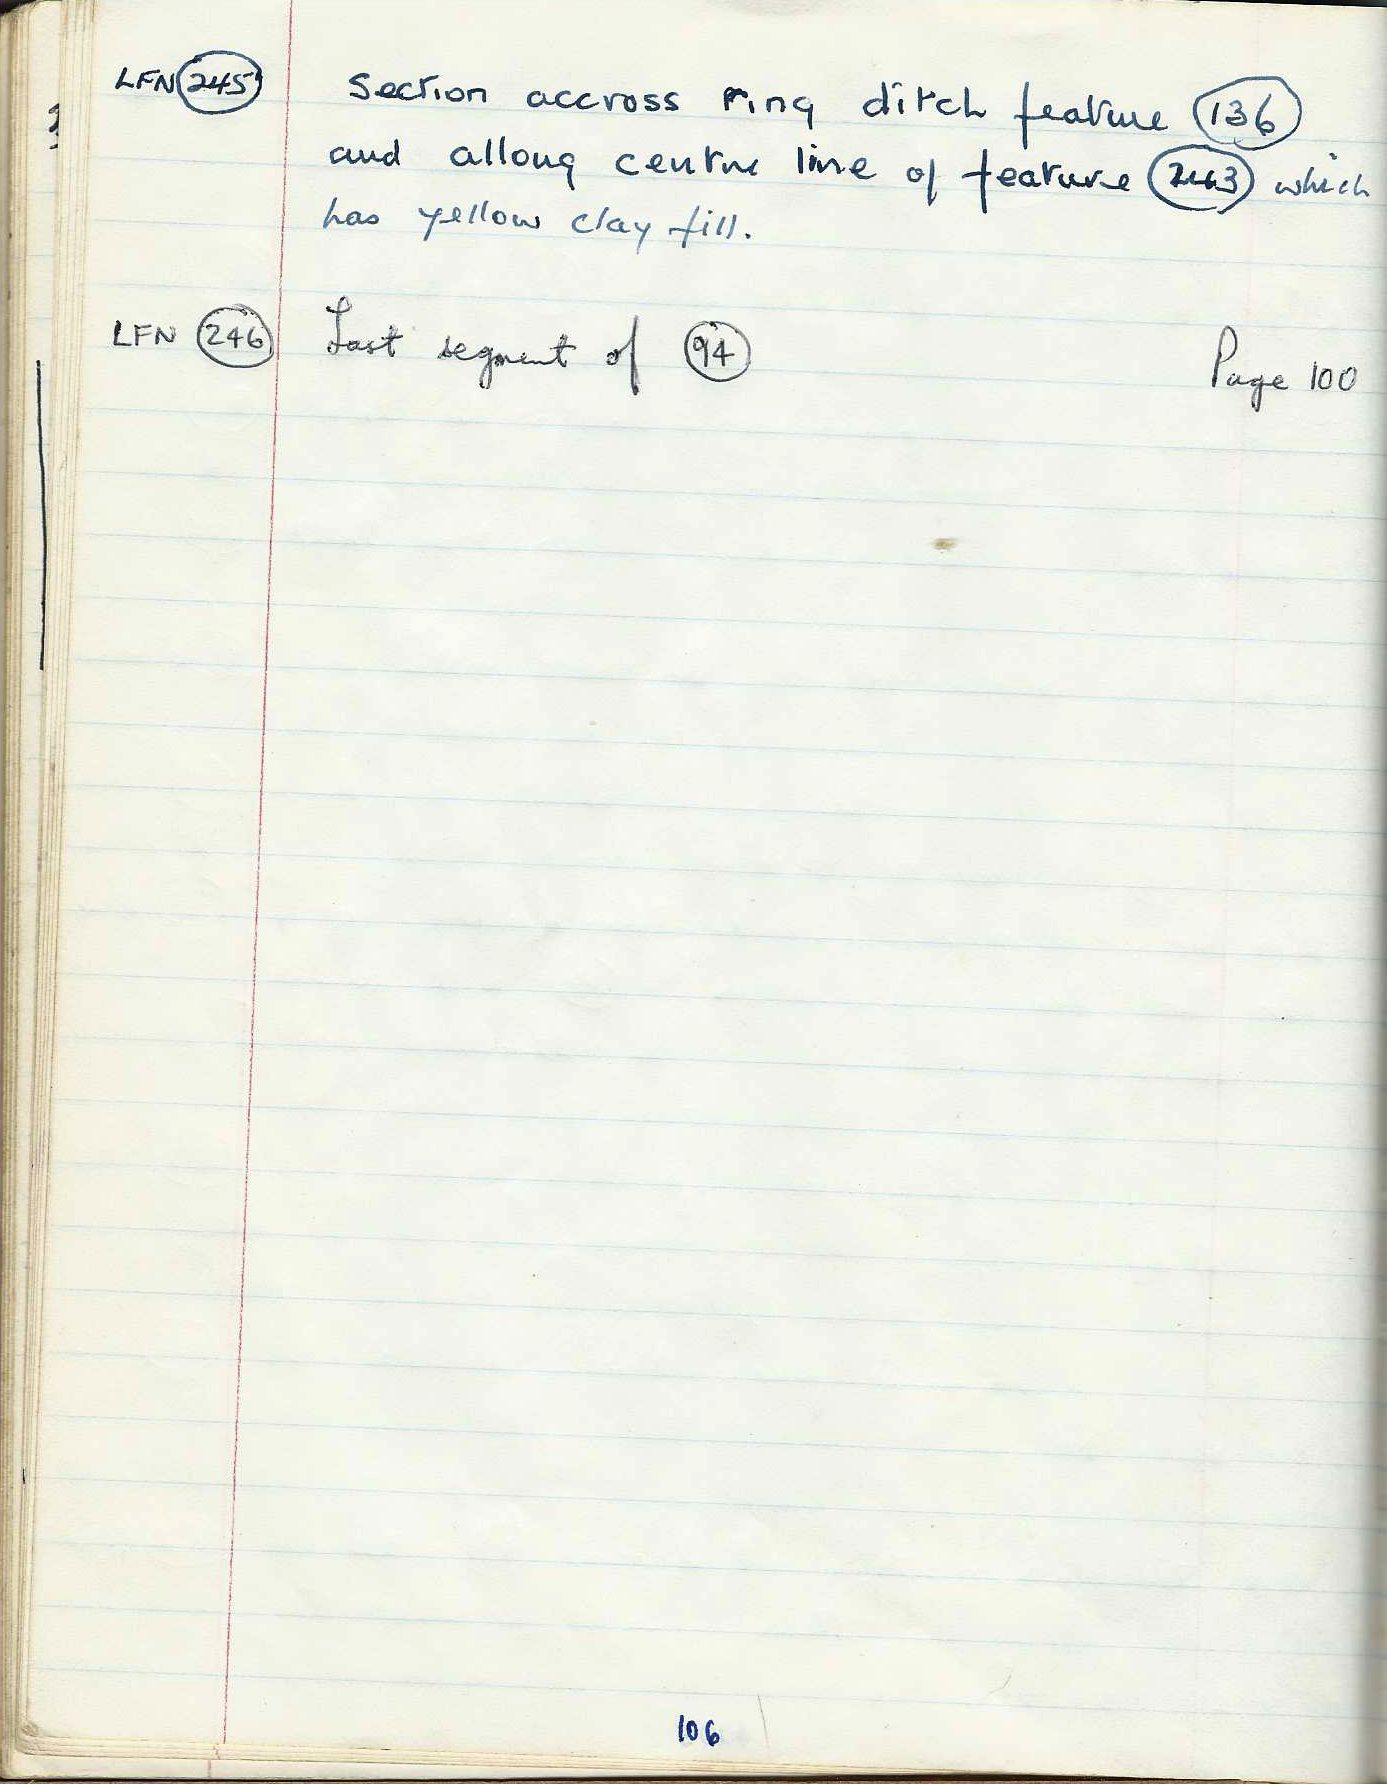 LFN 245 Section accross ring ditch feature 136
and allong centre line of feature 243 which
has yellow clay fill.
LFN 246 Last segment of 94 Page 100
106